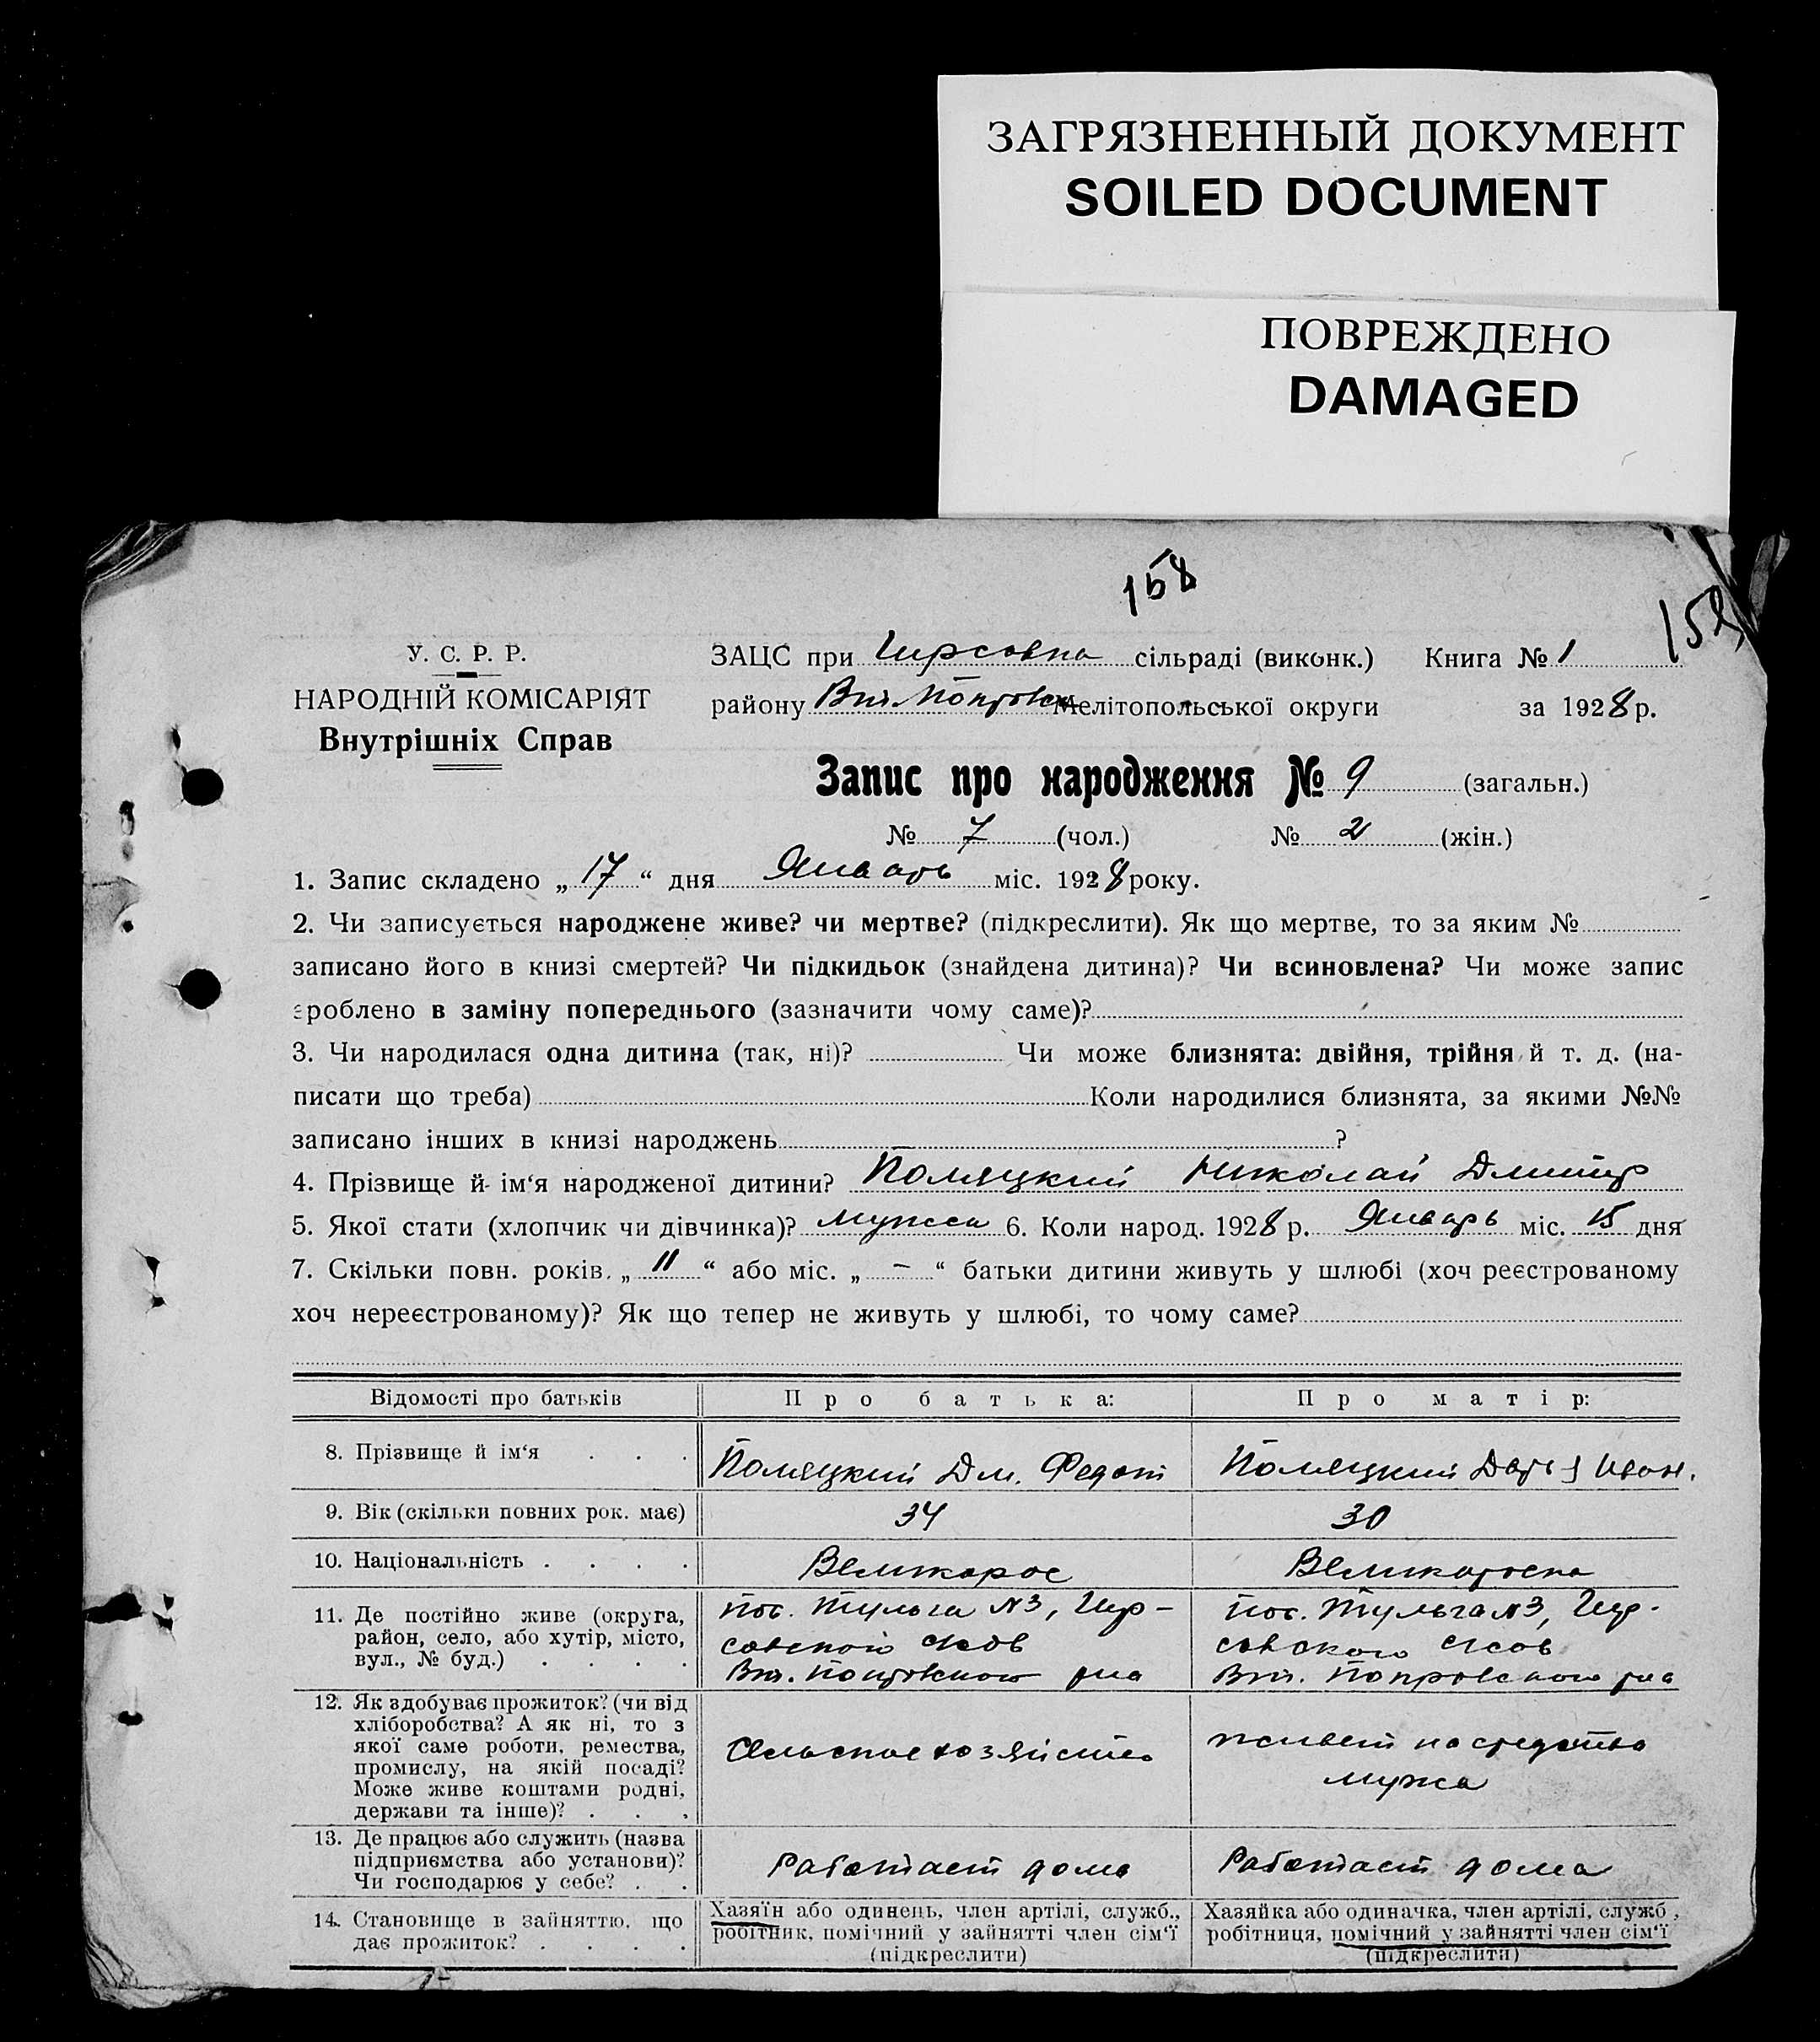 ЗАГРЯЗНЕННЫЙ ДОКУМЕНТ
SOILED DOCUMENT
ПОВРЕЖДЕНО
DAMAGED
158
У. С. Р. Р.
НАРОДНІЙ КОМІСАРІЯТ
Внутрішніх Справ
ЗАЦС при Гирсовка сільраді (виконк.) Книга № 1
району Мелітопольської округи за 1928 р.
Запис про народження № 9 (загальн.)
№ 7 (чол.) № 2 (жін.)
1. Запис складено „ 17 “ дня Январь міс. 1928 року.
2. Чи записується народжене живе? чи мертве? (підкреслити). Як що мертве, то за яким №
записано його в книзі смертей? Чи підкидьок (знайдена дитина)? Чи всиновлена? Чи може запис
зроблено в заміну попереднього (зазначити чому саме)?
3. Чи народилася одна дитина (так, ні)? Чи може близнята: двійня, трійня й т. д. (на-
писати що треба) Коли народилися близнята, за якими №№
записано інших в книзі народжень ?
4. Прізвище й ім‘я народженої дитини? Николай Дмитр
5. Якої статі (хлопчик чи дівчинка)? 6. Коли народ. 1928 р. Январь міс. 15 дня
7. Скільки повн. років. „ 11 “ або міс. „ – “ батьки дитини живуть у шлюбі (хоч реєстрованому
хоч нереєстрованому)? Як що тепер не живуть у шлюбі, то чому саме?
Відомості про батьків
Про батька:
Про матір:
8. Прізвище й ім‘я . . .
Дм. Федот
Дарья Иван.
9. Вік (скільки повних рок. має)
34
30
10. Національність . . . .
Великорос
Великороска
11. Де постійно живе (округа,
район, село, або хутір, місто,
вул., № буд.) . . . .
пос. Тульга №3, Гир-
совского
пос. Тульга №3, Гир-
совского
12. Як здобуває прожиток? (чи від
хліборобства? А як ні, то з
якої саме роботи, ремества,
промислу, на якій посаді?
Може живе коштами родні,
держави та інше)? . . .
Сельское хозяйство
живет на средства
мужа
13. Де працює або служить (назва
підприємства або установи)?
Чи господарює у себе? . .
Работает дома
Работает дома
14. Становище в зайняттю, що
дає прожиток? . . . .
Хазяїн або одинець, член артілі, служб.,
робітник, помічний у зайнятті член сім‘ї
(підкреслити)
Хазяйка або одиначка, член артілі, служб.,
робітниця, помічний у зайнятті член сім‘ї
(підкреслити)